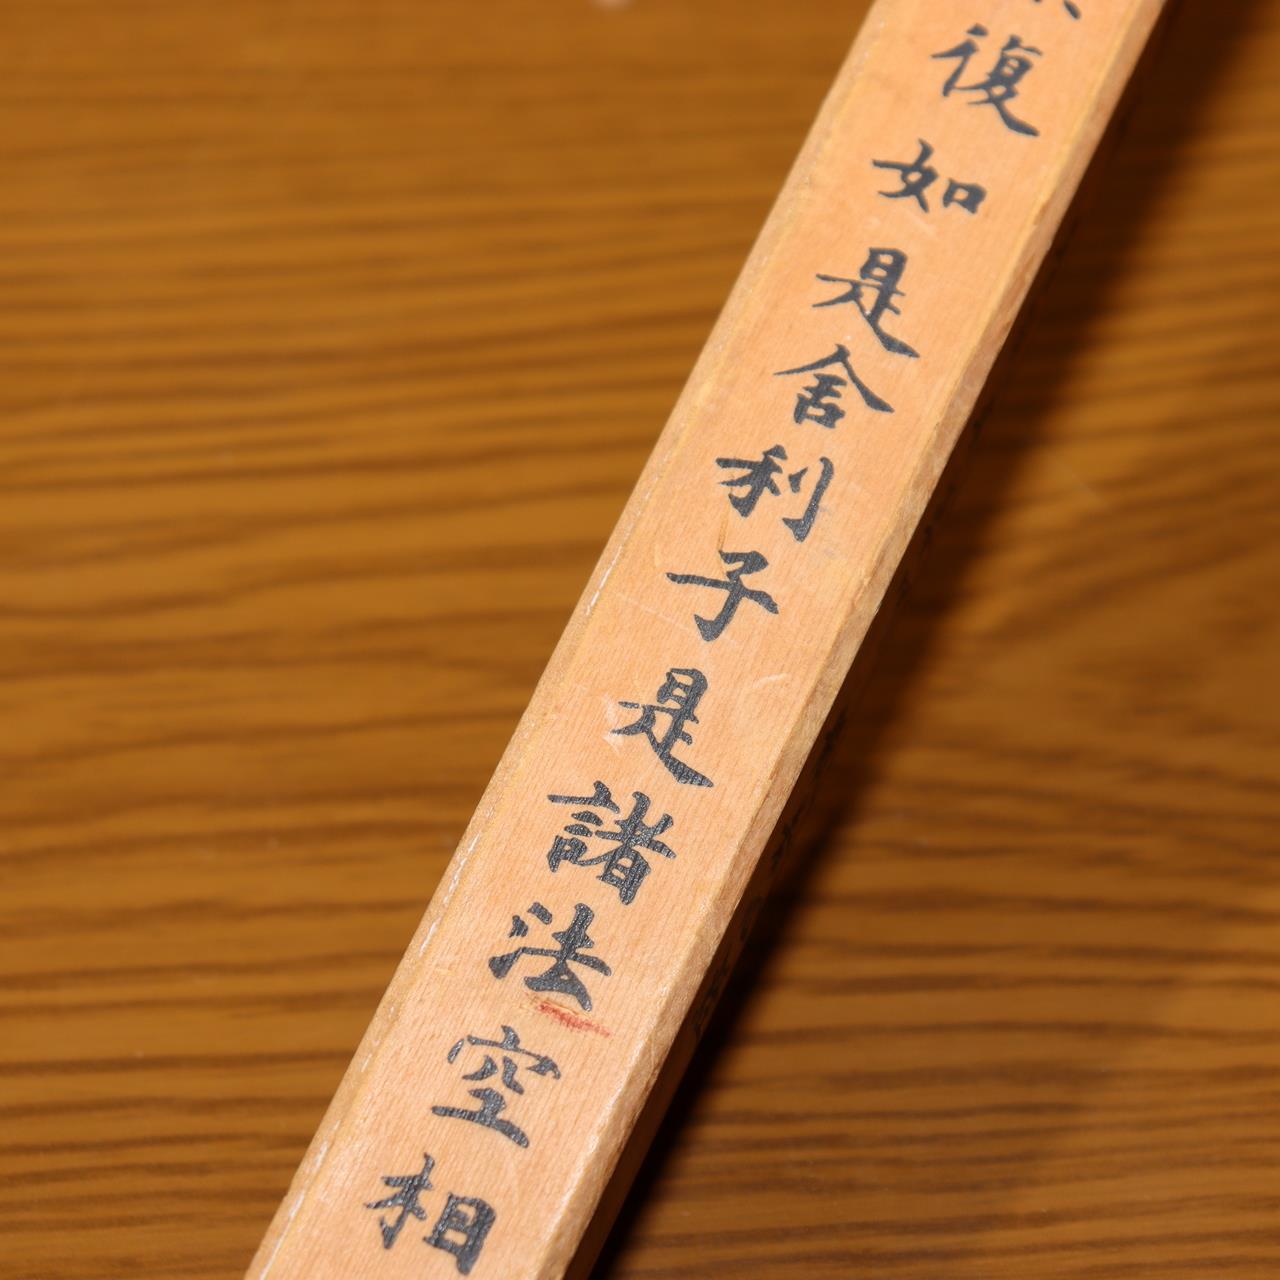 復如是舍利子是諸法空相